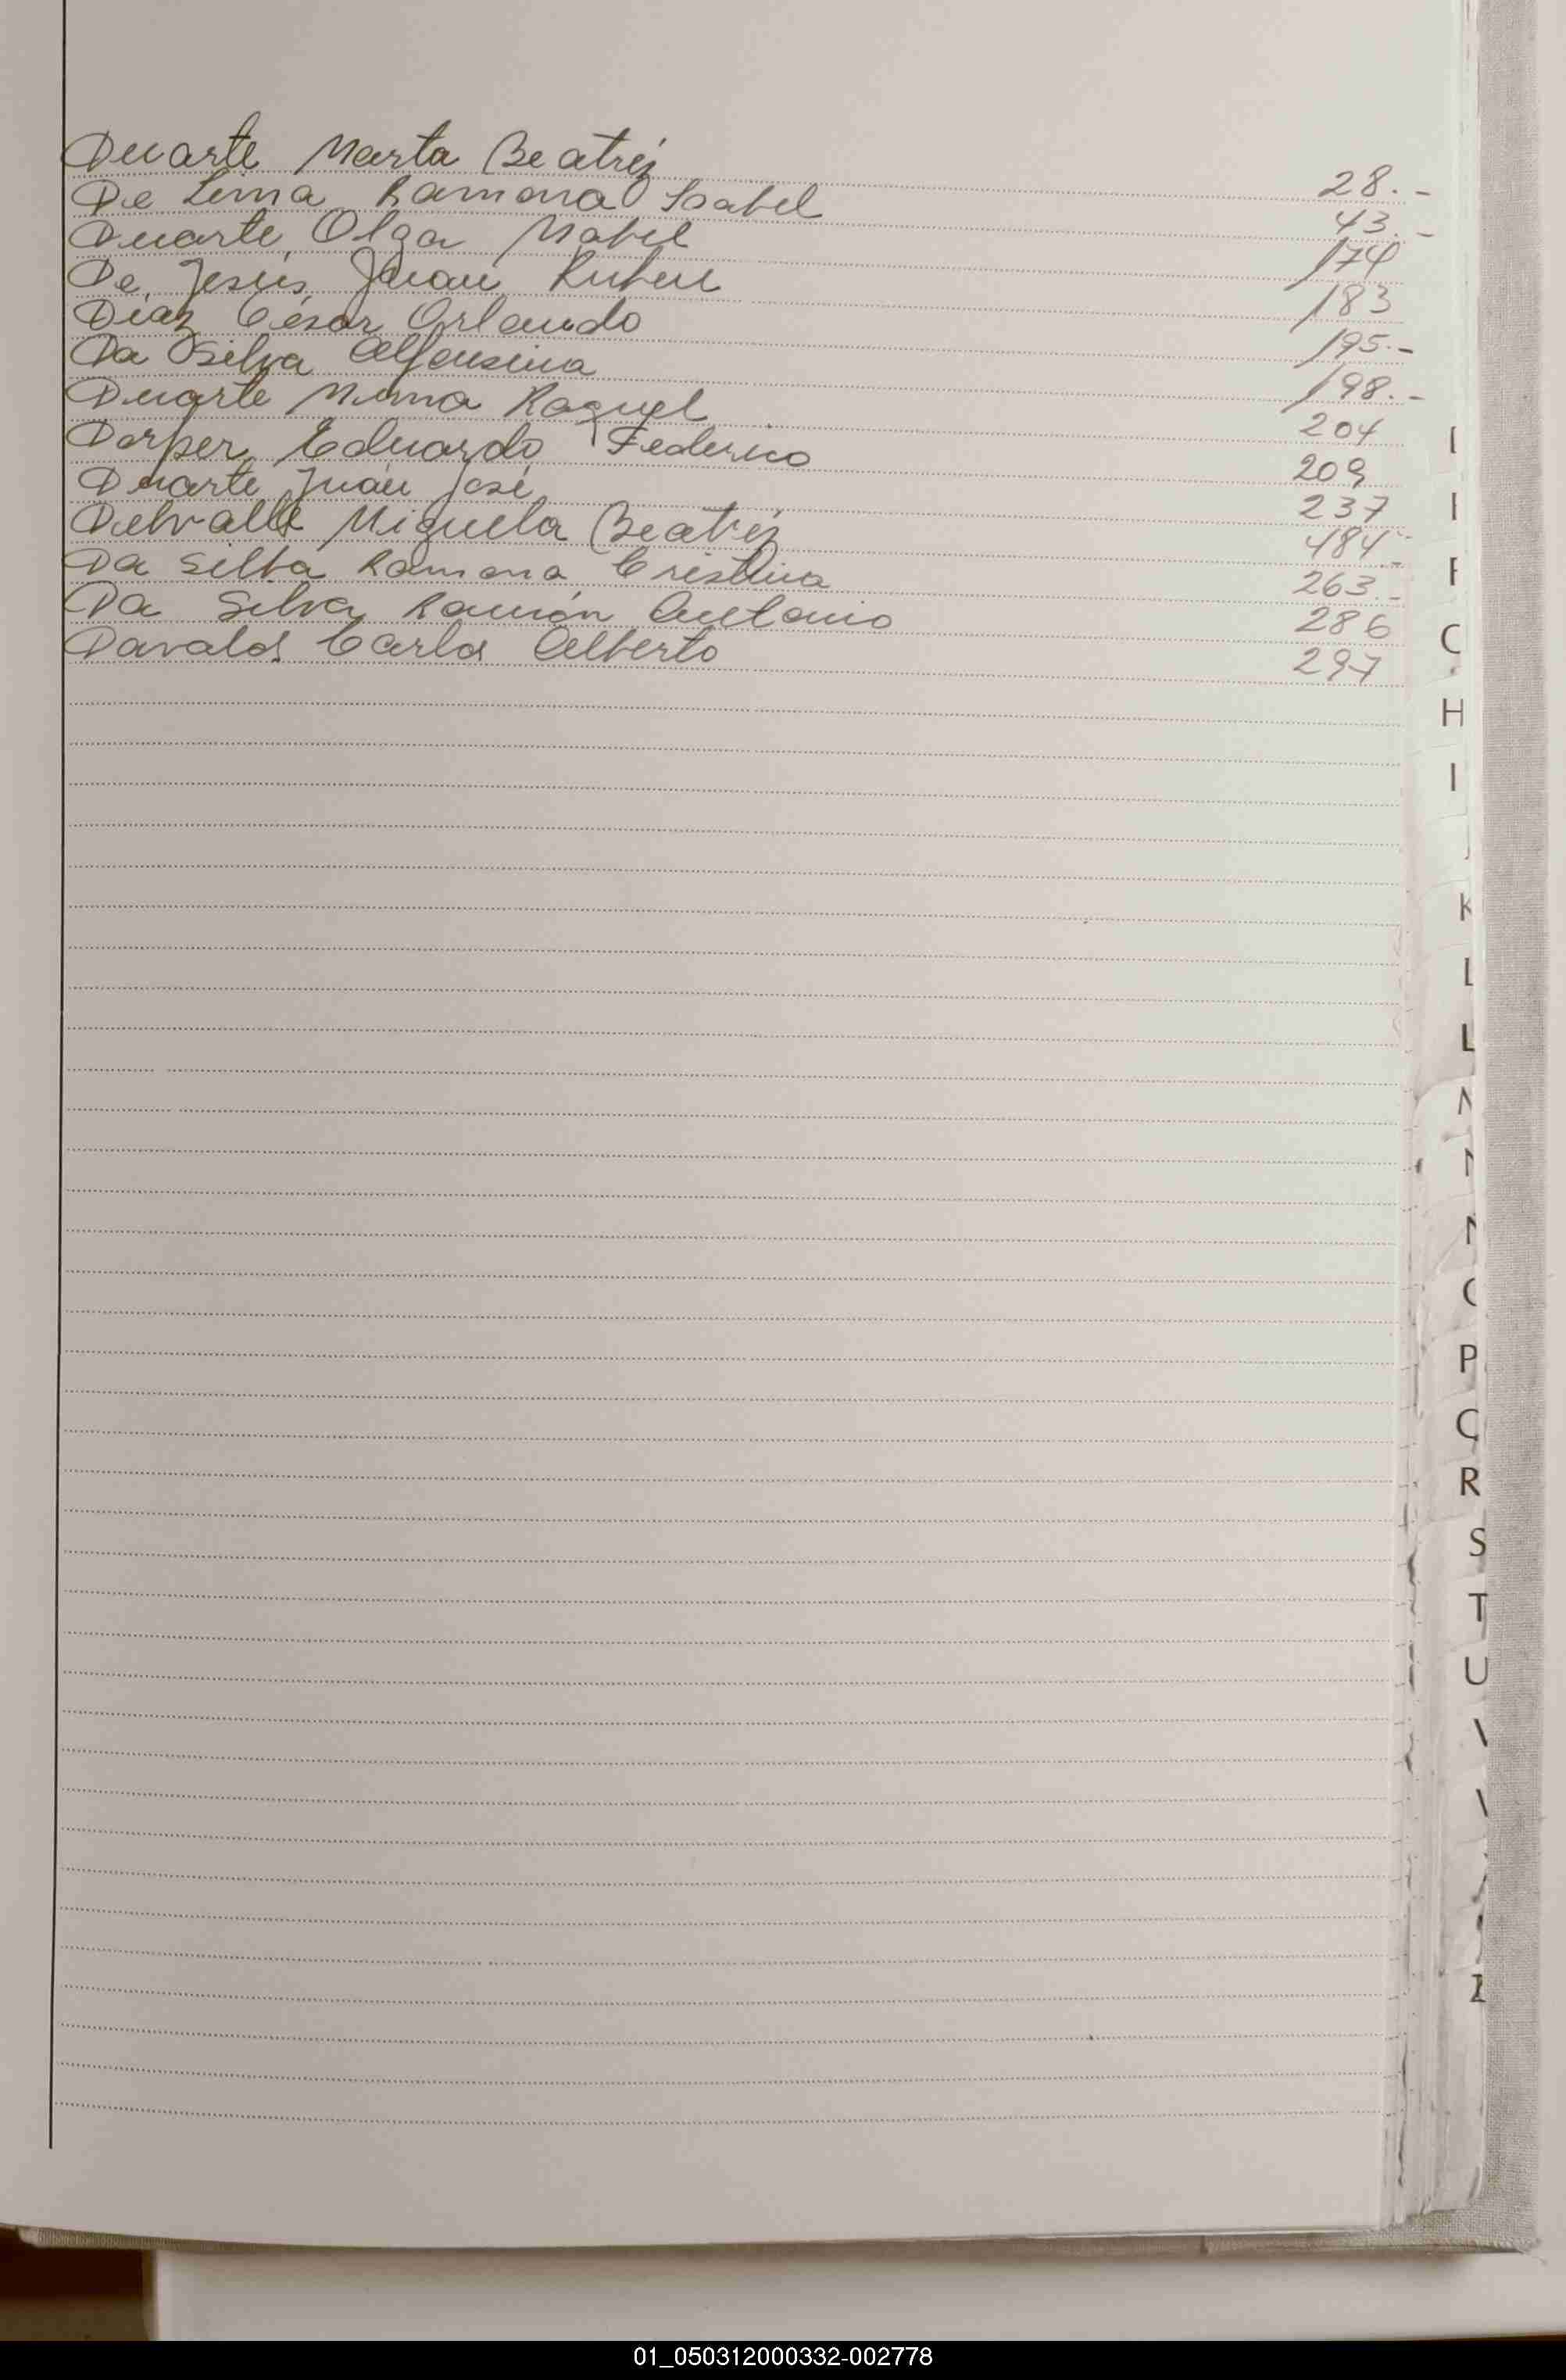 Duarte Marta Beatriz 28.-
De Lima Ramona Isabel 43.-
Duarte Olga Mabel 174
De Jesús Juan Ruben 183
Diaz César Orlando 195.-
Da Silva Alfonsina 198.-
Duarte Mirna Raquel 204
Dorper Eduardo Federico 209
Duarte Juan José 237
Delvalle Miguela Beatriz 484
Da Silba Ramona Cristina 263.-
Da Silva Ramón Antonio 286
Davalos Carlos Alberto 297
H
I
K
L
P
R
S
T
U
Z
01_050312000332-002778